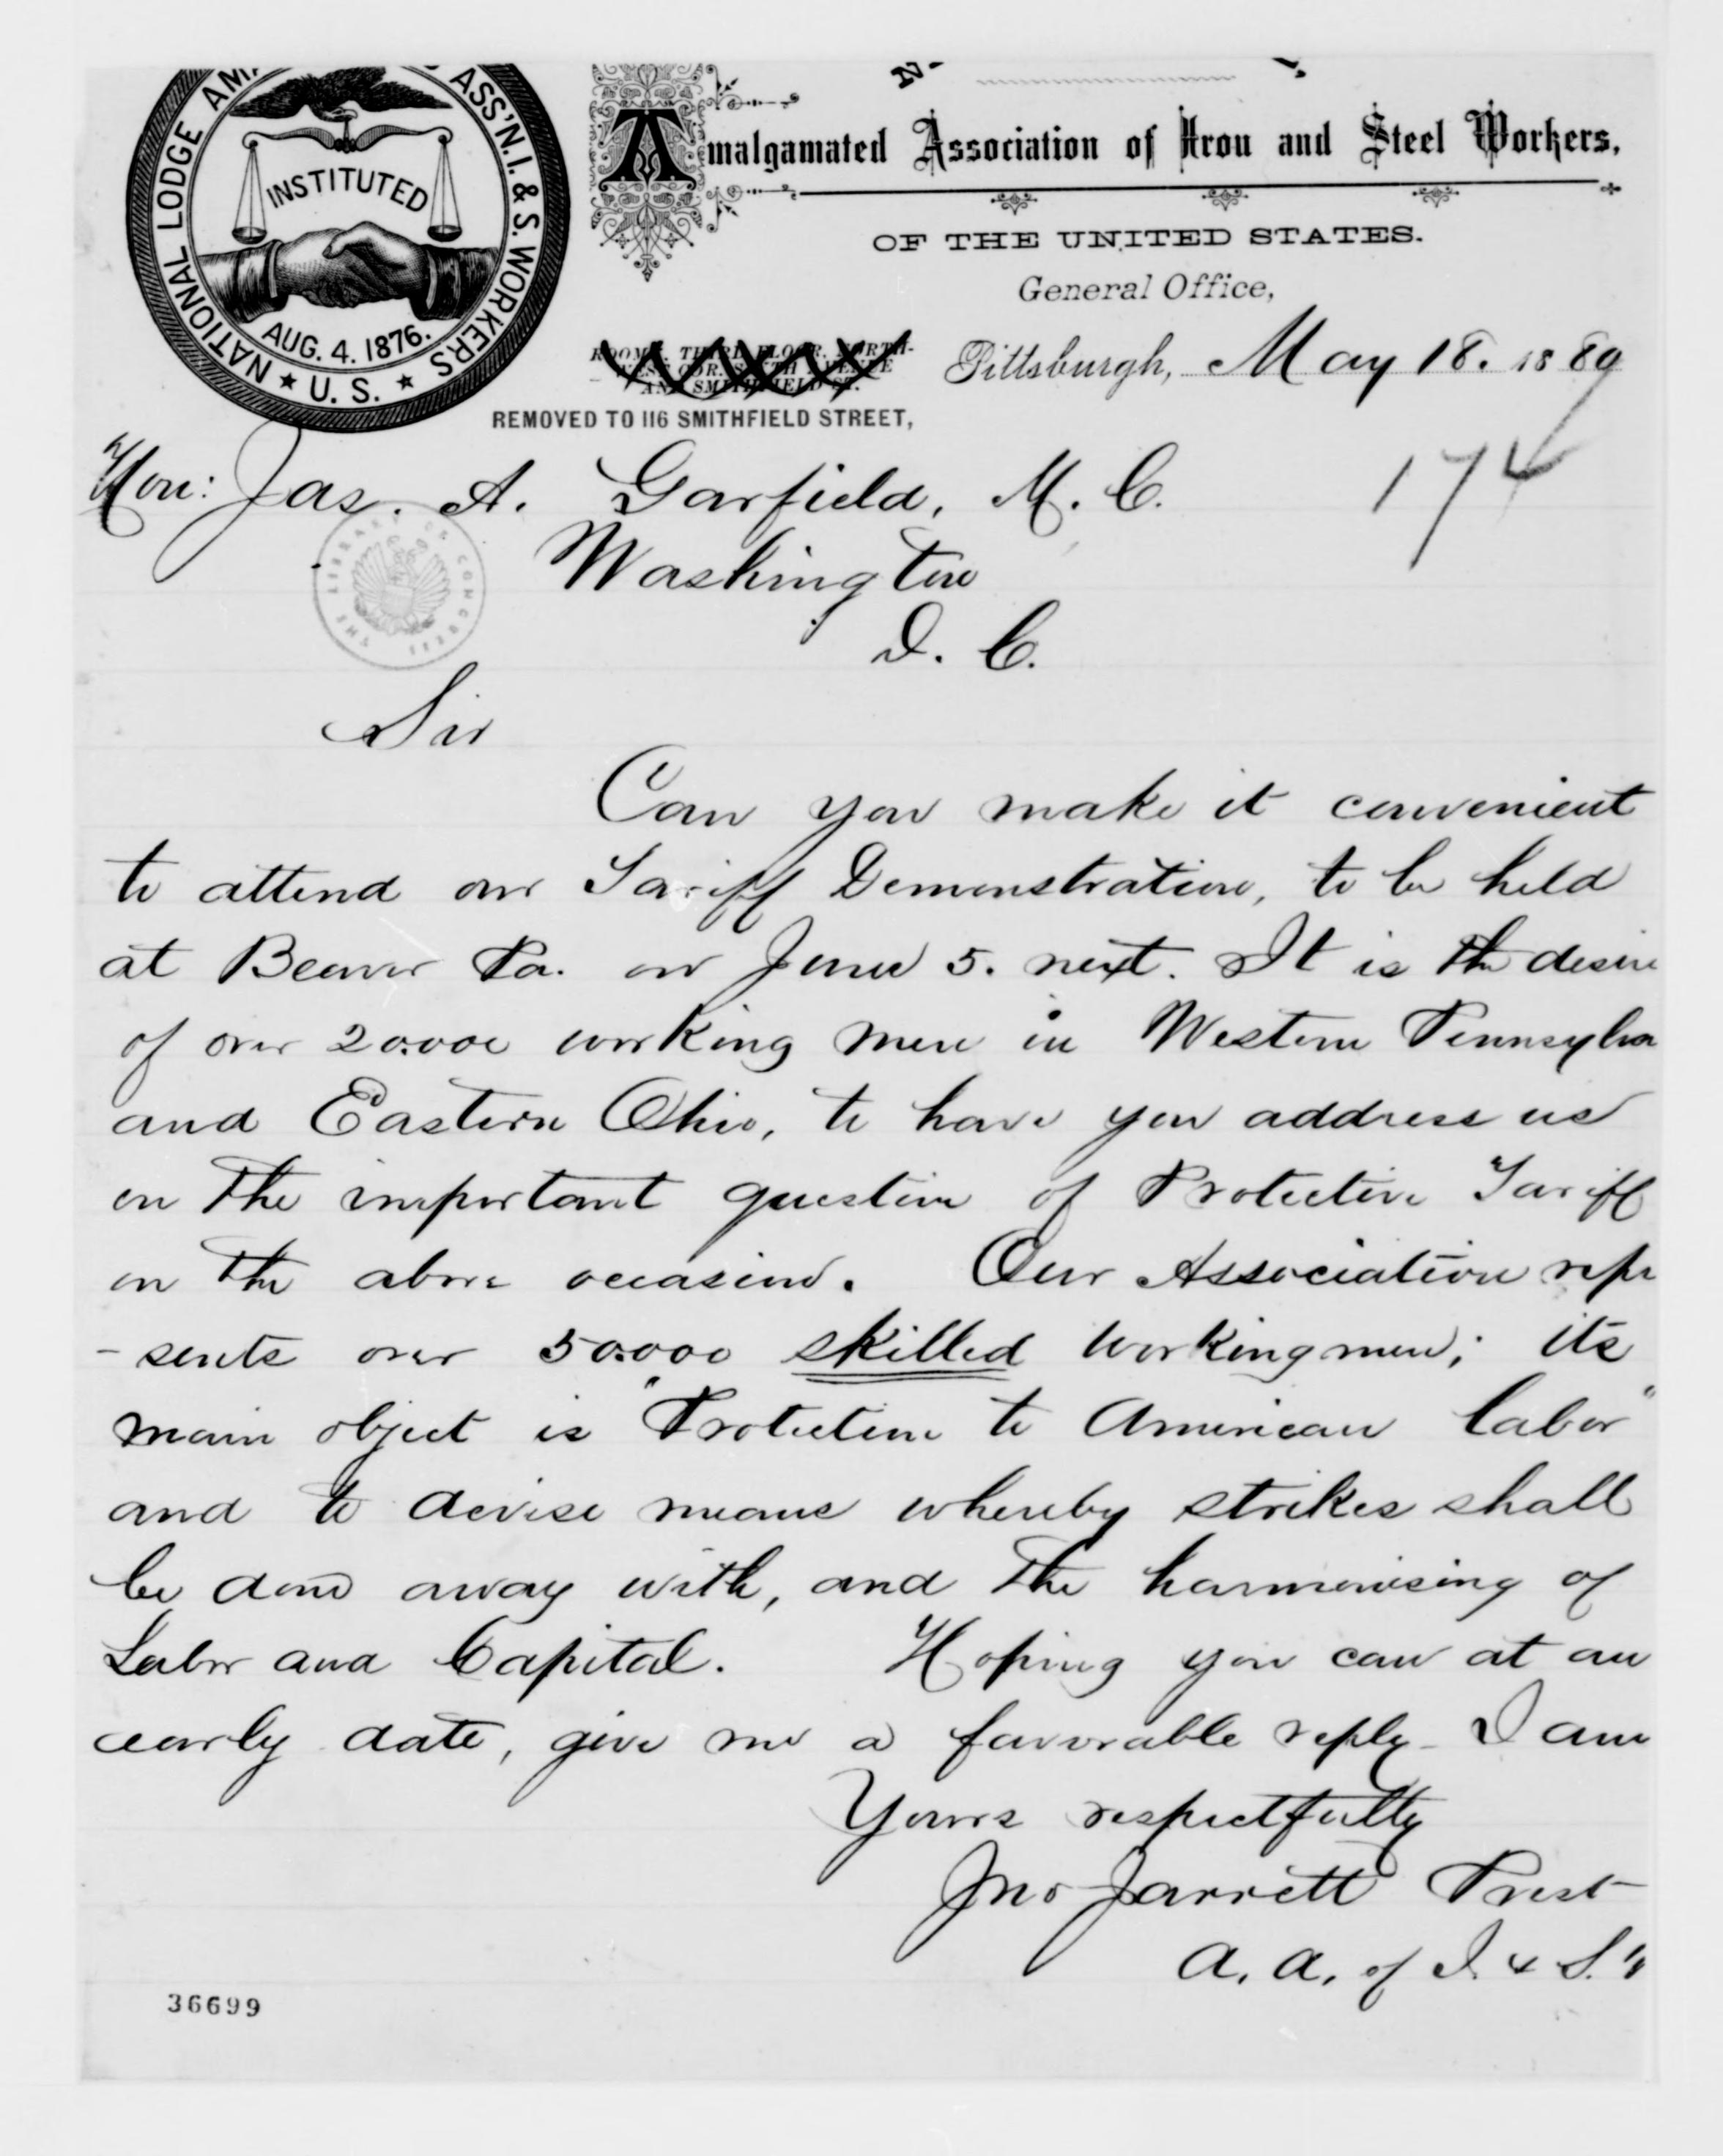 NATIONAL LODGE AM ASS'N. I. & S. WORKERS
★ U. S. ★
INSTITUTED
AUG. 4. 1876.
Amalgamated Association of Iron and Steel Workers,
OF THE UNITED STATES.
General Office,
ROOM THIRD FLOOR, NORTH-
WEST COR. SIXTH AVENUE
AND SMITHFIELD ST.
Pittsburgh, May 18. 1880
REMOVED TO 116 SMITHFIELD STREET,
174
Hon: Jas. A. Garfield, M. C.
Washington
D. C.
THE LIBRARY OF CONGRESS
Sir
Can you make it convenient
to attend our Tariff Demonstration, to be held
at Beaver Pa. on June 5. next. It is the desire
of over 20.000 working men in Western Pennsylva
and Eastern Ohio, to have you address us
on the important question of Protective Tariff
on the above occasion. Our Association repr
- sents over 50.000 skilled workingmen; its
main object is "Protection to American labor"
and to devise means whereby strikes shall
be done away with, and the harmonising of
Labor and Capital. Hoping you can at an
early date, give me a favorable reply - I am
Yours respectfully
Jno Jarrett Prest
A. A. of I. & S.
36699